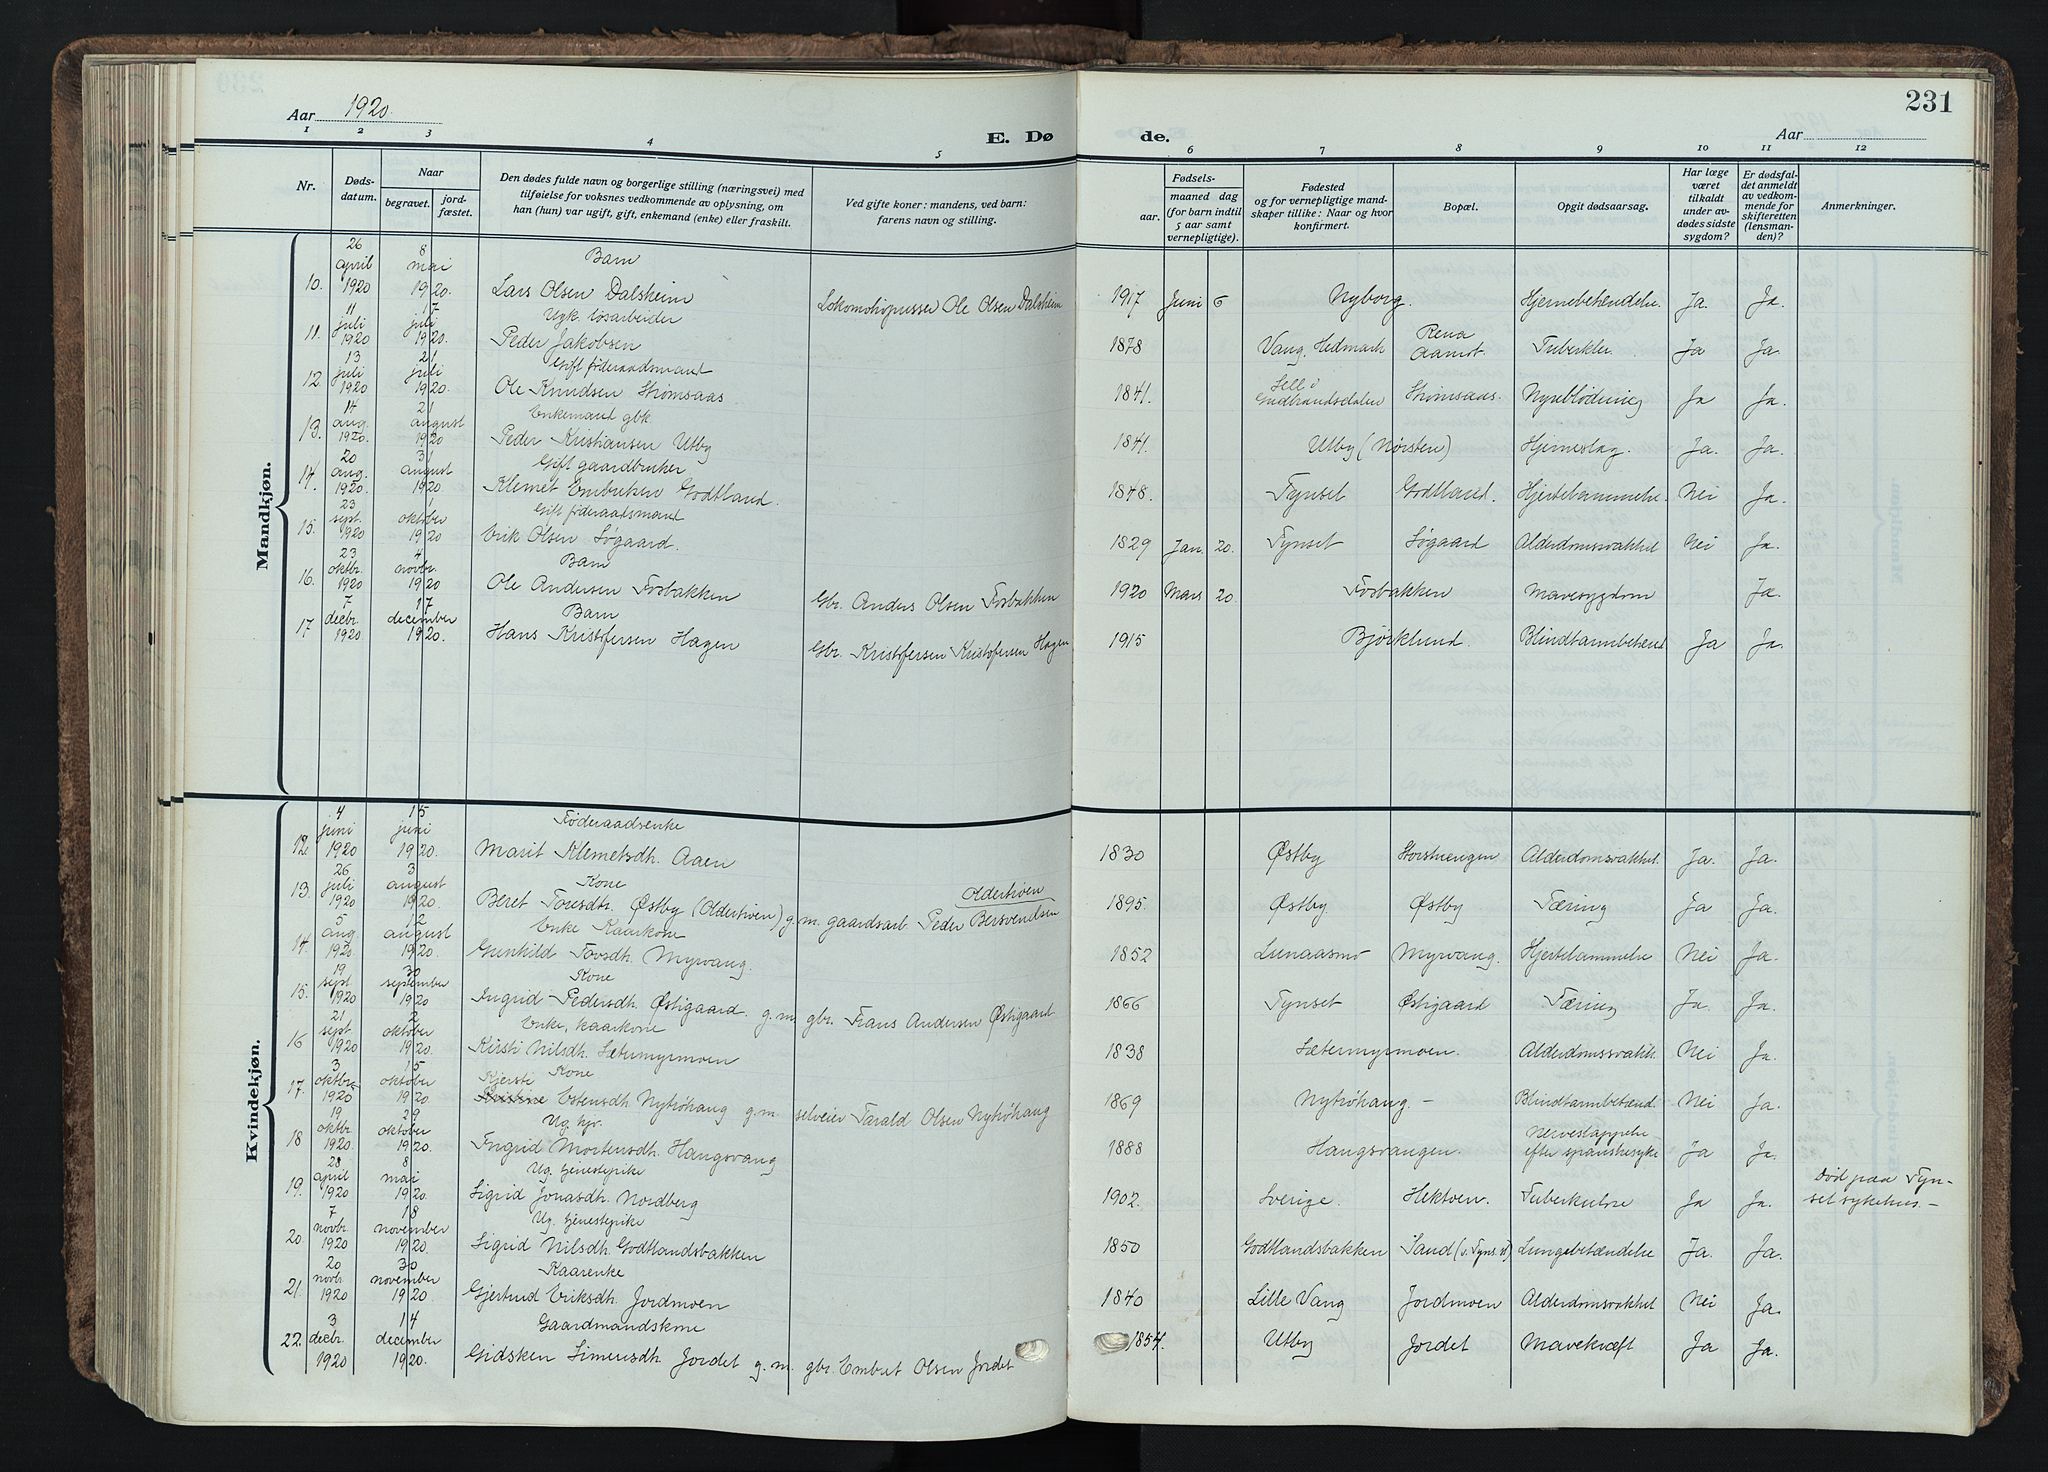 231
Aar 1920
E. Døde.
Aar
1 2 3 4 5 6 7 8 9 10 11 12
Nr.
Døds-datum.
Naar
begravet.
jord-fæstet.
Den dødes fulde navn og borgerlige stilling (næringsvei) med
tilføielse for voksnes vedkommende av oplysning, om
han (hun) var ugift, gift, enkemand (enke) eller fraskilt.
Ved gifte koner: mandens, ved barn:
farens navn og stilling.
Fødsels-
aar.
maaned dag
(for barn indtil
5 aar samt
vernepligtige).
Fødested
og for vernepligtige mand-
skaper tillike: Naar og hvor
konfirmert.
Bopæl.
Opgit dødsaarsag.
Har læge
været
tilkaldt
under av-
dødes sidste
sygdom?
Er dødsfal-
det anmeldt
av vedkom-
mende for
skifteretten
(lensman-
den)?
Anmerkninger.
Mandkjøn.
10. 26 april 1920 8 mai 1920. Barn
Lars Olsen Dalsheim Lokomotivpusser Ole Olsen Dalsheim 1917 Juni 6 Nyborg. Hjernebetændelse Ja. Ja.
11. 11 juli 1920 17 juli 1920. Ugk. løsarbeider
Peder Jakobsen 1878 Vang, Hedmark Rena Aamot. Tuberkler. Ja Ja.
12. 13 juli 1920 21 juli 1920. Gift føderaadsmand
Ole Knudsen Strømsaas 1841. Sell i Gudbrandsdalen Strømsaas. Nyreblødning Ja Ja.
13. 14 aug. 1920. 21 august 1920 Enkemand gbk.
Peder Kristiansen Utby 1841. Utby (Nørsten) Hjerneslag. Ja. Ja.
14. 20 aug. 1920. 31 august 1920 Gift gaardbruker
Klemet Embretsen Godtland. 1848. Tynset Godtland. Hjertelammelse. Nei Ja.
15. 23 sept. 1920 1 oktober 1920 Gift føderaadsmand
Erik Olsen Søgaard. 1829 Jan. 20. Tynset Søgaard Alderdomssvakhet Nei Ja.
16. 23 oktbr. 1920 4 novbr. 1920 Barn
Ole Andersen Fosbakken Gbr. Anders Olsen Fosbakken 1920 Mars 20. Fosbakken Mavesygdom Ja.
17. 7 decbr. 1920 17 december 1920. Barn
Hans Kristofersen Hagen Gbr. Kristofersen Kristofersen Hagen 1915 Bjørklund. Blindtarmbetænd. Ja Ja.
Kvindekjøn.
12. 4 juni 1920 15 juni 1920. Føderaadsenke
Marit Klemetsdh. Aaen 1830 Østby Storstrengen Alderdomsvakhet. Ja. Ja.
13. 26 juli 1920 3 august 1920. Kone
Beret Toresdh. Østby (Oldertrøen) g. m. gaardsarb. Peder Bersvendsen Oldertrøen 1895. Østby Østby Tæring Ja Ja.
14. 5 aug. 1920 12 august 1920. Enke Kaarkone
Gunhild Tovsdh. Myrvang. 1852 Lunaasmo Myrvang. Hjertelammelse Nei Ja.
15. 19 sept. 1920 30 september 1920 Kone
Ingrid Pedersdh. Østigaard. g. m. gbr. Frans Andersen Østigaard 1866 Tynset Østigaard Tæring Ja. Ja.
16 21 sept. 1920 2 oktober 1920. Enke, kaarkone
Kirsti Nilsdh. Sætermyrmoen 1838 Sætermyrmoen. Alderdomssvakh. Nei Ja.
17. 3 oktbr. 1920 15 oktober 1920 Kjersti Kone
Kristine Estensdh. Nytrøhaug g. m. selveier Tarald Olsen Nytrøhaug 1869 Nytrøhaug. - Blindtarmbetænd. Nei Ja.
18 19 oktbr. 1920. 29 oktober 1920. Ug. hjv.
Ingrid Mortensdh. Haugsvang 1888 Haugsvangen. Nerveslappelse efter spanskesyke Ja Ja.
19. 28. april 1920 8 mai 1920. Ug. tjenestepike
Sigrid Jonasdh. Nordberg 1902. Sverige. Hektoen. Tuberkulose Ja Ja. Død paa Tyn-
set sykehus. -
20. 7 novbr. 1920 18 november 1920. Ug. tjenestepike
Sigrid Nilsdh. Godtlandsbakken 1850 Godtlandsbakken Sand (v. Tyns. st) Lungebetændelse Ja. Ja.
21. 20 novbr. 1920 30 november 1920. Kaarenke
Gjertrud Eriksdh. Jordmoen 1840 Lille Vang Jordmoen Alderdomsvakhet Nei Ja.
22. 3 decbr. 1920 14 december 1920. Gaardmandskone
Gidsken Simensdh. Jordet g. m. gbr. Embret Olsen Jordet 1854. Utby Jordet Mavekræft Ja Ja.